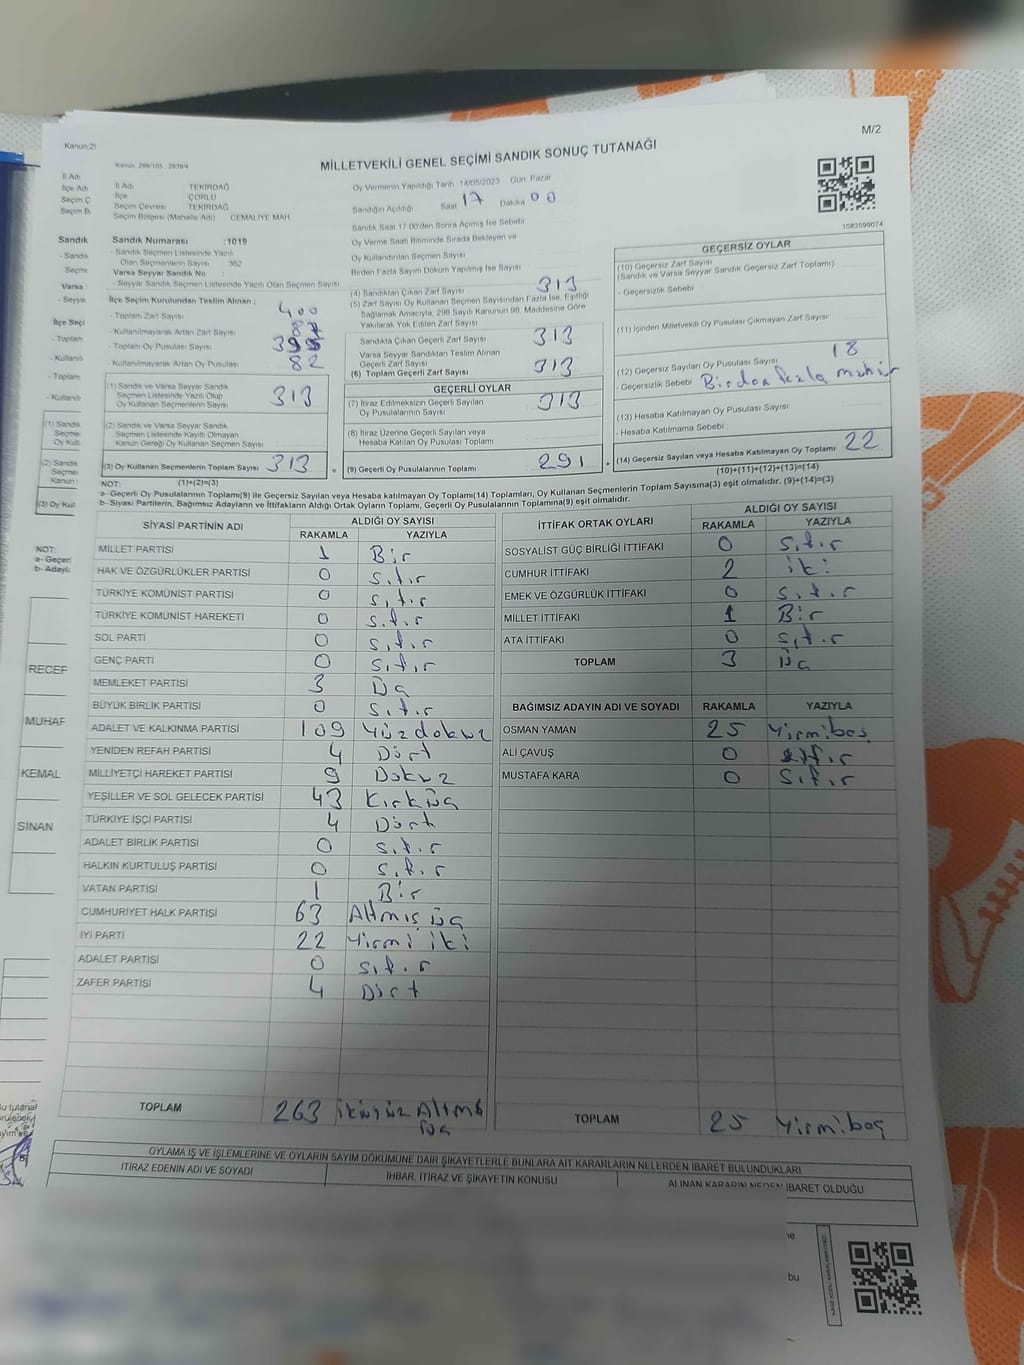 M/2
Kanun:2
Kanun: 298/105 ; 2839/4
MİLLETVEKİLİ GENEL SEÇİMİ SANDIK SONUÇ TUTANAĞI
İl Adı
İlçe Adı
Seçim Ç
Seçim B
İl Adı : TEKİRDAĞ
İlçe : ÇORLU
Seçim Çevresi : TEKİRDAĞ
Seçim Bölgesi (Mahalle Adı) : CEMALİYE MAH
Oy Vermenin Yapıldığı Tarih :14/05/2023 Gün: Pazar
Sandığın Açıldığı Saat 17 Dakika 00
Sandık Saat 17:00'den Sonra Açılmış İse Sebebi
Oy Verme Saati Bitiminde Sırada Bekleyen ve
Oy Kullandırılan Seçmen Sayısı
Birden Fazla Sayım Döküm Yapılmış İse Sayısı
1083599074
Sandık
- Sandık
Seçme
Varsa
- Seyya
İlçe Seçi
- Toplam
- Kullanıl
- Toplam
- Kullanıl
Sandık Numarası :1019
- Sandık Seçmen Listesinde Yazılı
Olan Seçmenlerin Sayısı :362
Varsa Seyyar Sandık No :
- Seyyar Sandık Seçmen Listesinde Yazılı Olan Seçmen Sayısı
İlçe Seçim Kurulundan Teslim Alınan :
- Toplam Zarf Sayısı 400
- Kullanılmayarak Artan Zarf Sayısı 87
- Toplam Oy Pusulası Sayısı 395
- Kullanılmayarak Artan Oy Pusulası 82
(1) Sandık ve Varsa Seyyar Sandık
Seçmen Listesinde Yazılı Olup
Oy Kullanan Seçmenlerin Sayısı 313
(2) Sandık ve Varsa Seyyar Sandık
Seçmen Listesinde Kayıtlı Olmayan
Kanun Gereği Oy Kullanan Seçmen Sayısı
(3) Oy Kullanan Seçmenlerin Toplam Sayısı 313 =
(4) Sandıktan Çıkan Zarf Sayısı 313
(5) Zarf Sayısı Oy Kullanan Seçmen Sayısından Fazla İse, Eşitliği
Sağlamak Amacıyla, 298 Sayılı Kanunun 98. Maddesine Göre
Yakılarak Yok Edilen Zarf Sayısı
Sandıkta Çıkan Geçerli Zarf Sayısı 313
Varsa Seyyar Sandıktan Teslim Alınan
Geçerli Zarf Sayısı
(6) Toplam Geçerli Zarf Sayısı 313
GEÇERLİ OYLAR
(7) İtiraz Edilmeksizin Geçerli Sayılan
Oy Pusulasının Sayısı 313
(8) İtiraz Üzerine Geçerli Sayılan veya
Hesaba Katılan Oy Pusulası Toplamı
(9) Geçerli Oy Pusulalarının Toplamı 291 +
GEÇERSİZ OYLAR
(10) Geçersiz Zarf Sayısı
(Sandık ve Varsa Seyyar Sandık Geçersiz Zarf Toplamı)
- Geçersizlik Sebebi :
(11) İçinden Milletvekili Oy Pusulası Çıkmayan Zarf Sayısı
(12) Geçersiz Sayılan Oy Pusulası Sayısı 18
- Geçersizlik Sebebi Birden fazla mühür
(13) Hesaba Katılmayan Oy Pusulası Sayısı
- Hesaba Katılmama Sebebi :
(14) Geçersiz Sayılan veya Hesaba Katılmayan Oy Toplamı 22
(10)+(11)+(12)+(13)=(14)
NOT: (1)+(2)=(3)
a- Geçerli Oy Pusulalarının Toplamı(9) ile Geçersiz Sayılan veya Hesaba katılmayan Oy Toplamı(14) Toplamları, Oy Kullanan Seçmenlerin Toplam Sayısına(3) eşit olmalıdır. (9)+(14)=(3)
b- Siyasi Partilerin, Bağımsız Adayların ve İttifakların Aldığı Ortak Oyların Toplamı, Geçerli Oy Pusulalarının Toplamına(9) eşit olmalıdır.
SİYASİ PARTİNİN ADI ALDIĞI OY SAYISI
RAKAMLA YAZIYLA
MİLLET PARTİSİ 1 Bir
HAK VE ÖZGÜRLÜKLER PARTİSİ 0 Sıfır
TÜRKİYE KOMÜNİST PARTİSİ 0 Sıfır
TÜRKİYE KOMÜNİST HAREKETİ 0 Sıfır
SOL PARTİ 0 Sıfır
GENÇ PARTİ 0 Sıfır
MEMLEKET PARTİSİ 3 Üç
BÜYÜK BİRLİK PARTİSİ 0 Sıfır
ADALET VE KALKINMA PARTİSİ 109 Yüzdokuz
YENİDEN REFAH PARTİSİ 4 Dört
MİLLİYETÇİ HAREKET PARTİSİ 9 Dokuz
YEŞİLLER VE SOL GELECEK PARTİSİ 43 Kırküç
TÜRKİYE İŞÇİ PARTİSİ 4 Dört
ADALET BİRLİK PARTİSİ 0 Sıfır
HALKIN KURTULUŞ PARTİSİ 0 Sıfır
VATAN PARTİSİ 1 Bir
CUMHURİYET HALK PARTİSİ 63 Altmış üç
İYİ PARTİ 22 Yirmi iki
ADALET PARTİSİ 0 Sıfır
ZAFER PARTİSİ 4 Dört
TOPLAM 263 ikiyüz Altmış
üç
İTTİFAK ORTAK OYLARI ALDIĞI OY SAYISI
RAKAMLA YAZIYLA
SOSYALİST GÜÇ BİRLİĞİ İTTİFAKI 0 Sıfır
CUMHUR İTTİFAKI 2 iki
EMEK VE ÖZGÜRLÜK İTTİFAKI 0 Sıfır
MİLLET İTTİFAKI 1 Bir
ATA İTTİFAKI 0 Sıfır
TOPLAM 3 Üç
BAĞIMSIZ ADAYIN ADI VE SOYADI RAKAMLA YAZIYLA
OSMAN YAMAN 25 Yirmibeş
ALİ ÇAVUŞ 0 Sıfır
MUSTAFA KARA 0 Sıfır
TOPLAM 25 Yirmibeş
RECEP
MUHAR
KEMAL
SİNAN
OYLAMA İŞ VE İŞLEMLERİNE VE OYLARIN SAYIM DÖKÜMÜNE DAİR ŞİKAYETLERLE BUNLARA AİT KARARLARIN NELERDEN İBARET BULUNDUKLARI
İTİRAZ EDENİN ADI VE SOYADI İHBAR, İTİRAZ VE ŞİKAYETİN KONUSU ALINAN KARARIN NEDEN İBARET OLDUĞU
bu